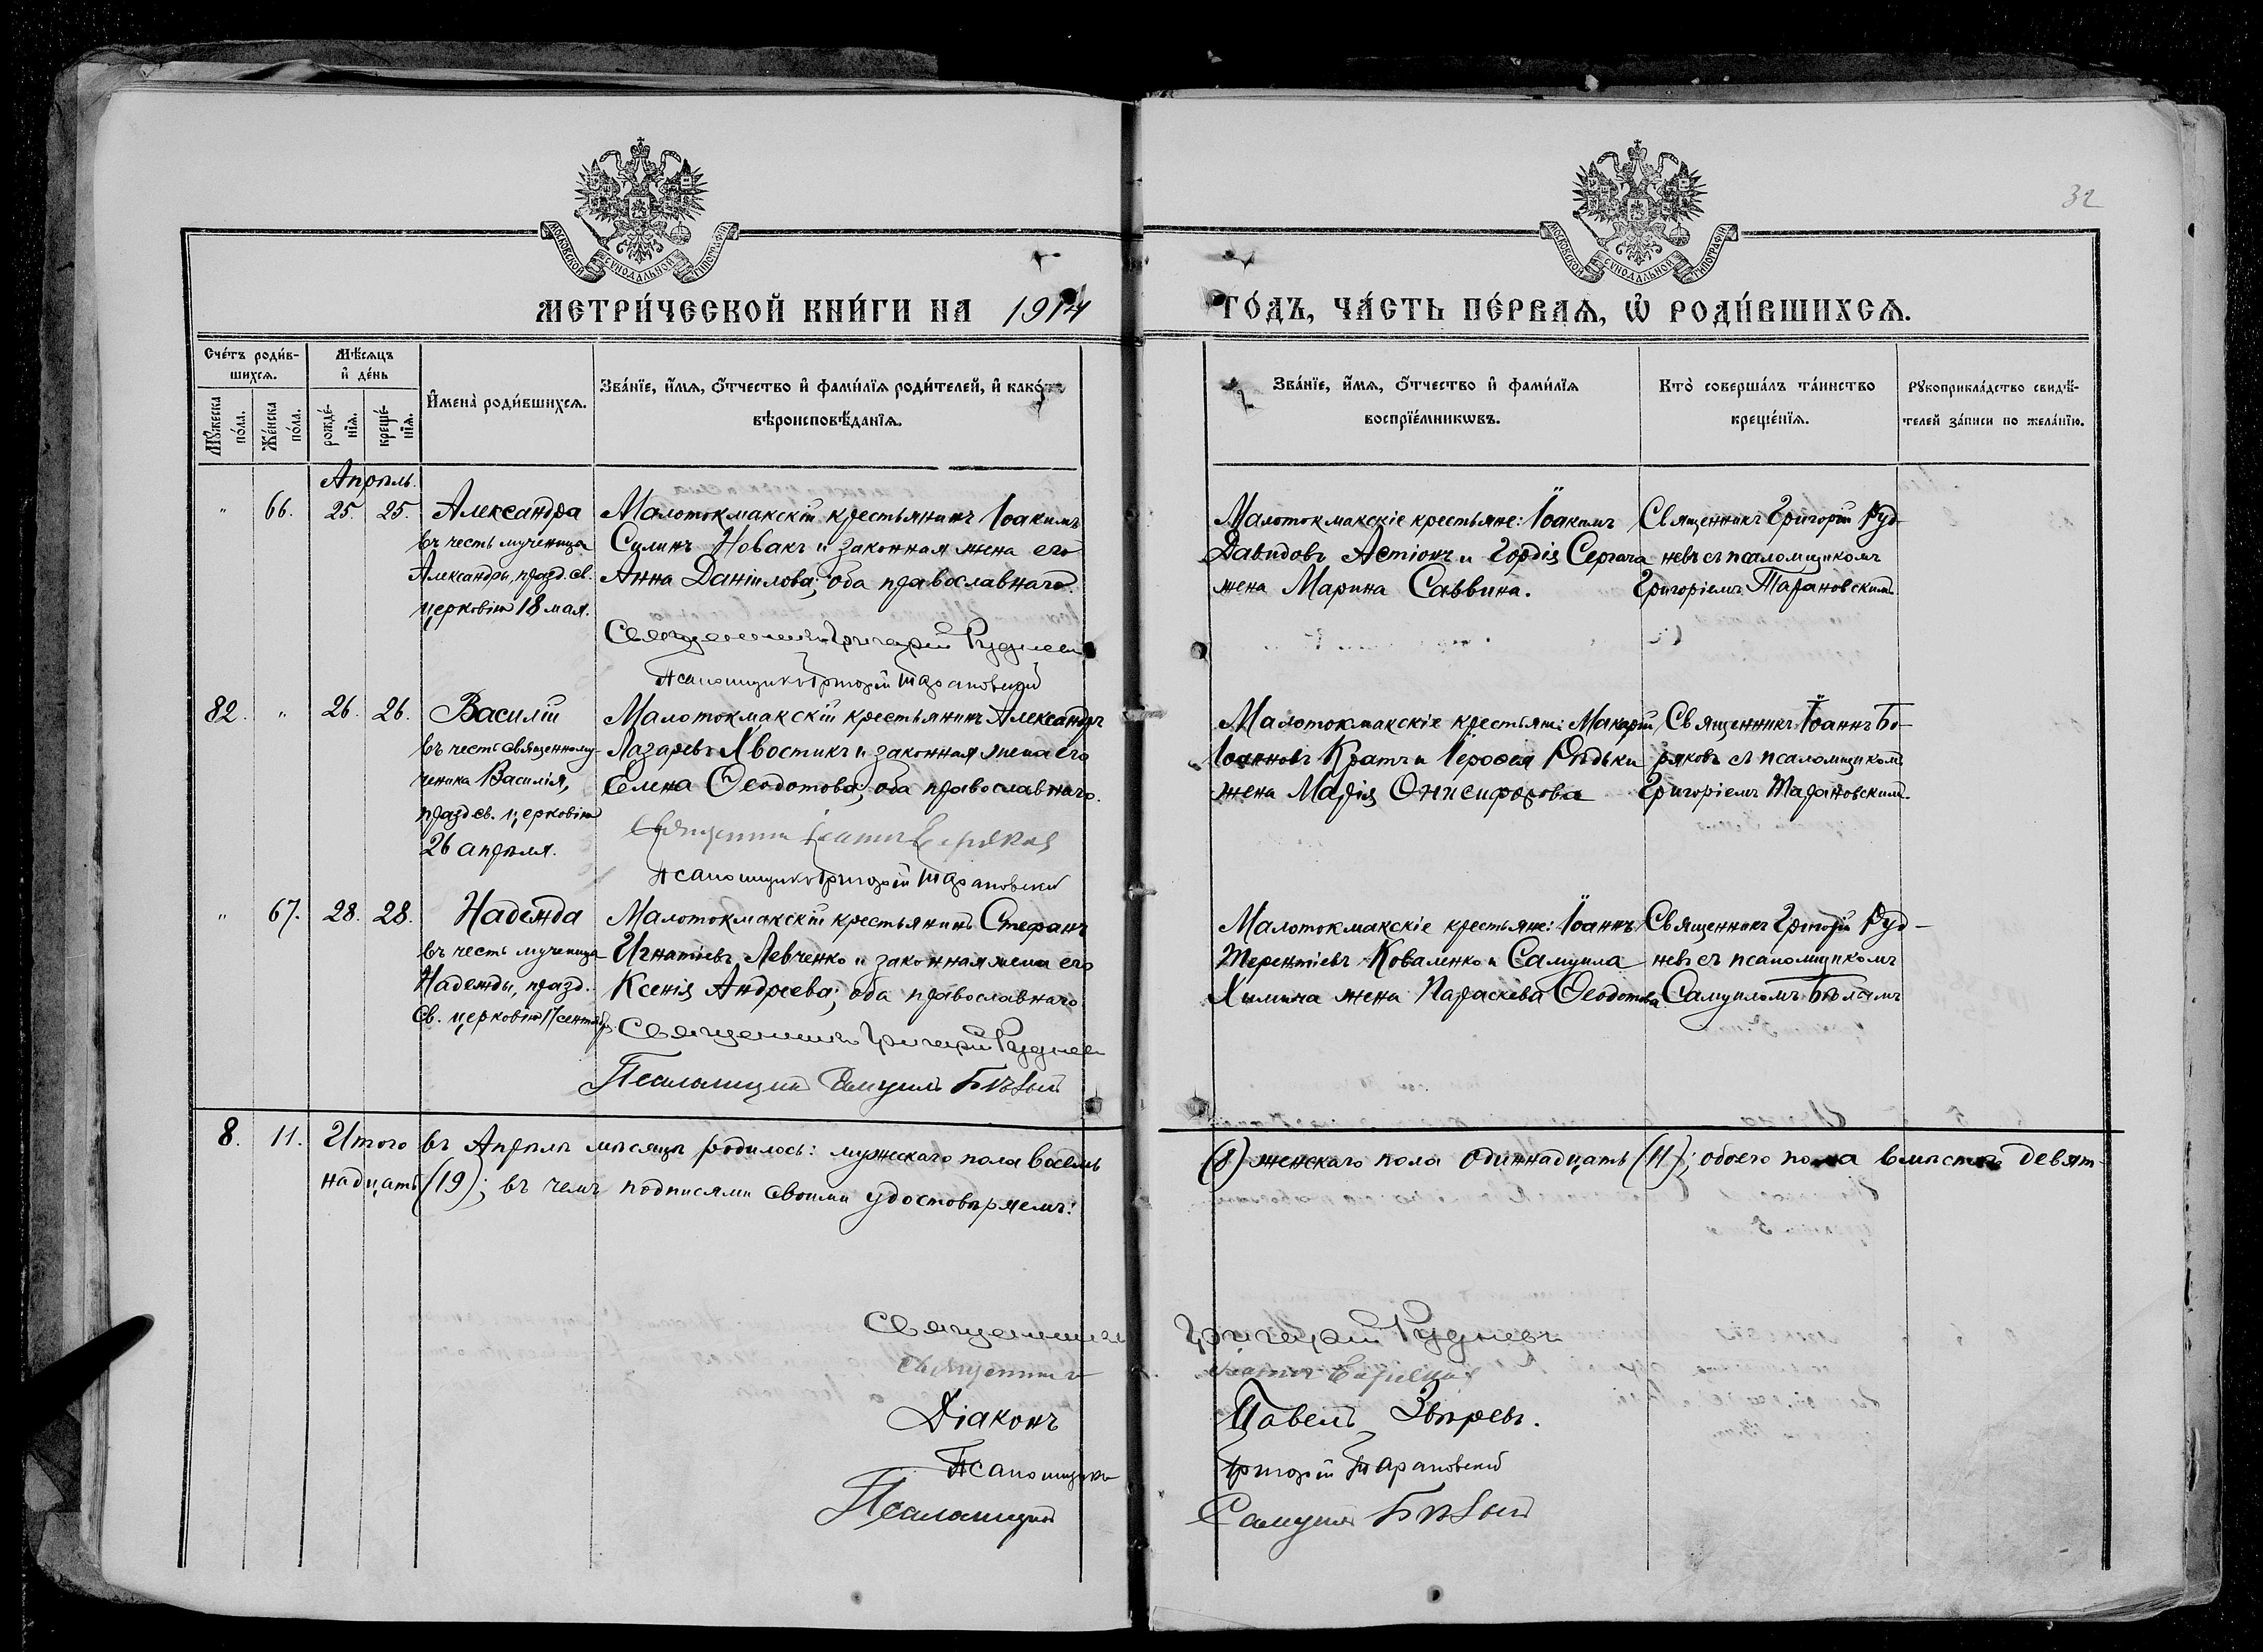 32
МОСКОВСКОЙ СУНОДАЛЬНОЙ ТИПОГРАФІИ
МОСКОВСКОЙ СУНОДАЛЬНОЙ ТИПОГРАФІИ
МЕТРИ́ЧЕСКОЙ КНИ́ГИ НА 1914
ГО́ДЪ, ЧА́СТЬ ПЕ́РВАѦ, Ѽ РОДИ́ВШИХСѦ.
Сче́тъ роди́в-
шихсѧ.
Мѣ́сѧцъ
и҆ де́нь
Мꙋ́жеска по́ла.
Же́нска по́ла.
рожде́-
нїѧ.
креще́-
нїѧ.
И҆мена̀ роди́вшихсѧ.
Зва́нїе, и҆́мѧ, ѻ҆́тчество и҆ фами́лїѧ роди́телей, и҆ како́гѡ
вѣроисповѣ́данїѧ.
Зва́нїе, и҆́мѧ, ѻ҆́тчество и҆ фами́лїѧ
воспрїе́мникѡвъ.
Кто̀ соверша́лъ та́инство
креще́нїѧ.
Рꙋкоприкла́дство свидѣ́-
телей за́писи по жела́нїю.
Апрѣль.
" 66. 25. 25. Александра
въ честь мученицы
Александры, празд. св.
церковію 18 мая.
Малотокмакскій крестьянинъ Іоакимъ
Новакъ и законная жена его
Анна Даніилова; оба православнаго.
Священникъ Григорій Рудневъ
Псаломщикъ Григорій Тарановскій
Малотокмакскіе крестьяне: Іоакимъ
Давидовъ Астіонъ и Гордія Сергача
жена Марина Саввина.
Священникъ Григорій Руд-
невъ съ псаломщикомъ
Григоріемъ Тарановскимъ
82. " 26. 26. Василій
въ честь священному-
ченика Василія,
празд св. церковію
26 апрѣля.
Малотокмакскій крестьянинъ Александръ
Лазаревъ Хвостикъ и законная жена его
Елена Ѳеодотова; оба православнаго.
Священникъ Іоаннъ Боряковъ
Псаломщикъ Григорій Тарановскій
Малотокмакскіе крестьяне: Макарій
Іоанновъ Кратъ и Іероѳея Рѣдьки
жена Марія Онисифорова
Священникъ Іоаннъ Бо-
ряковъ съ псаломщикомъ
Григоріемъ Тарановскимъ.
" 67. 28. 28. Надежда
въ честь мученицы
Надежды, празд.
Св. церковію 17 сентябр.
Малотокмакскій крестьянинъ Стефанъ
Игнатіевъ Левченко и законная жена его
Ксенія Андреева; оба православнаго
Священникъ Григорій Рудневъ
Псаломщикъ Самуилъ Бѣлый
Малотокмакскіе крестьяне: Іоаннъ
Терентіевъ Коваленко и Самуила
Химича жена Параскева Ѳеодотова
Священникъ Григорій Руд-
невъ съ псаломщикомъ
Самуиломъ Бѣлымъ
8. 11. Итого въ Апрѣлѣ мѣсяцѣ родилось: мужескаго пола восемь
(8) женскаго пола одиннадцать (11); обоего пола вмѣстѣ девят-
надцать (19); въ чемъ подписями своими удостовѣряемъ:
Священникъ Григорій Рудневъ
Священникъ Іоаннъ Боряковъ
Діаконъ Павелъ Звѣревъ.
Псаломщикъ Григорій Тарановскій
Псаломщикъ Самуилъ Бѣлый